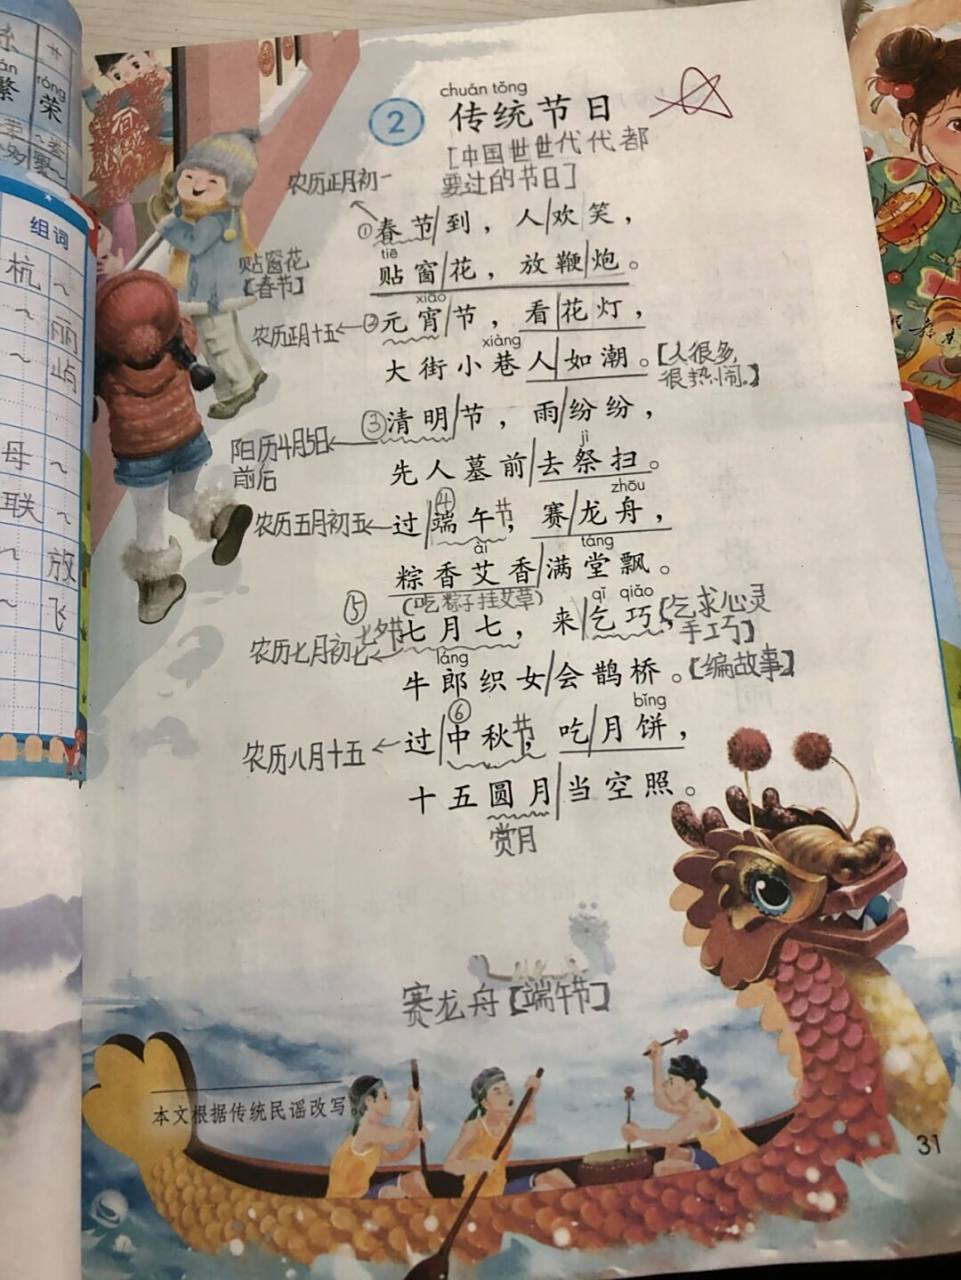 chuán tǒng
2 传统节日
[中国世世代代都
要过的节日]
农历正月初一
①春节/到，人/欢笑，
tiē
贴窗花
【春节】
贴窗/花，放鞭/炮。
xiāo
农历正月十五←②元宵/节，看/花灯，
xiàng
大街小巷人/如潮。【人很多，
很热闹。】
阳历4月5日
前后
③清明/节，雨/纷纷，
jì
先人墓前/去祭扫。
zhōu
农历五月初五←过/④端午节，赛/龙舟，
ài táng
粽香艾香/满堂飘。
(吃粽子挂艾草)
qǐ qiǎo
农历七月初七←⑤七夕节七月七，来/乞巧，【乞求心灵
手工巧】
láng
牛郎织女/会鹊桥。【编故事】
bǐng
农历八月十五←过/⑥中秋节，吃/月饼，
十五圆月/当空照。
赏月
赛龙舟【端午节】
本文根据传统民谣改写。
31
组词
杭～
～丽
～屿
母～
联～
～放
～飞
án
繁
róng
荣